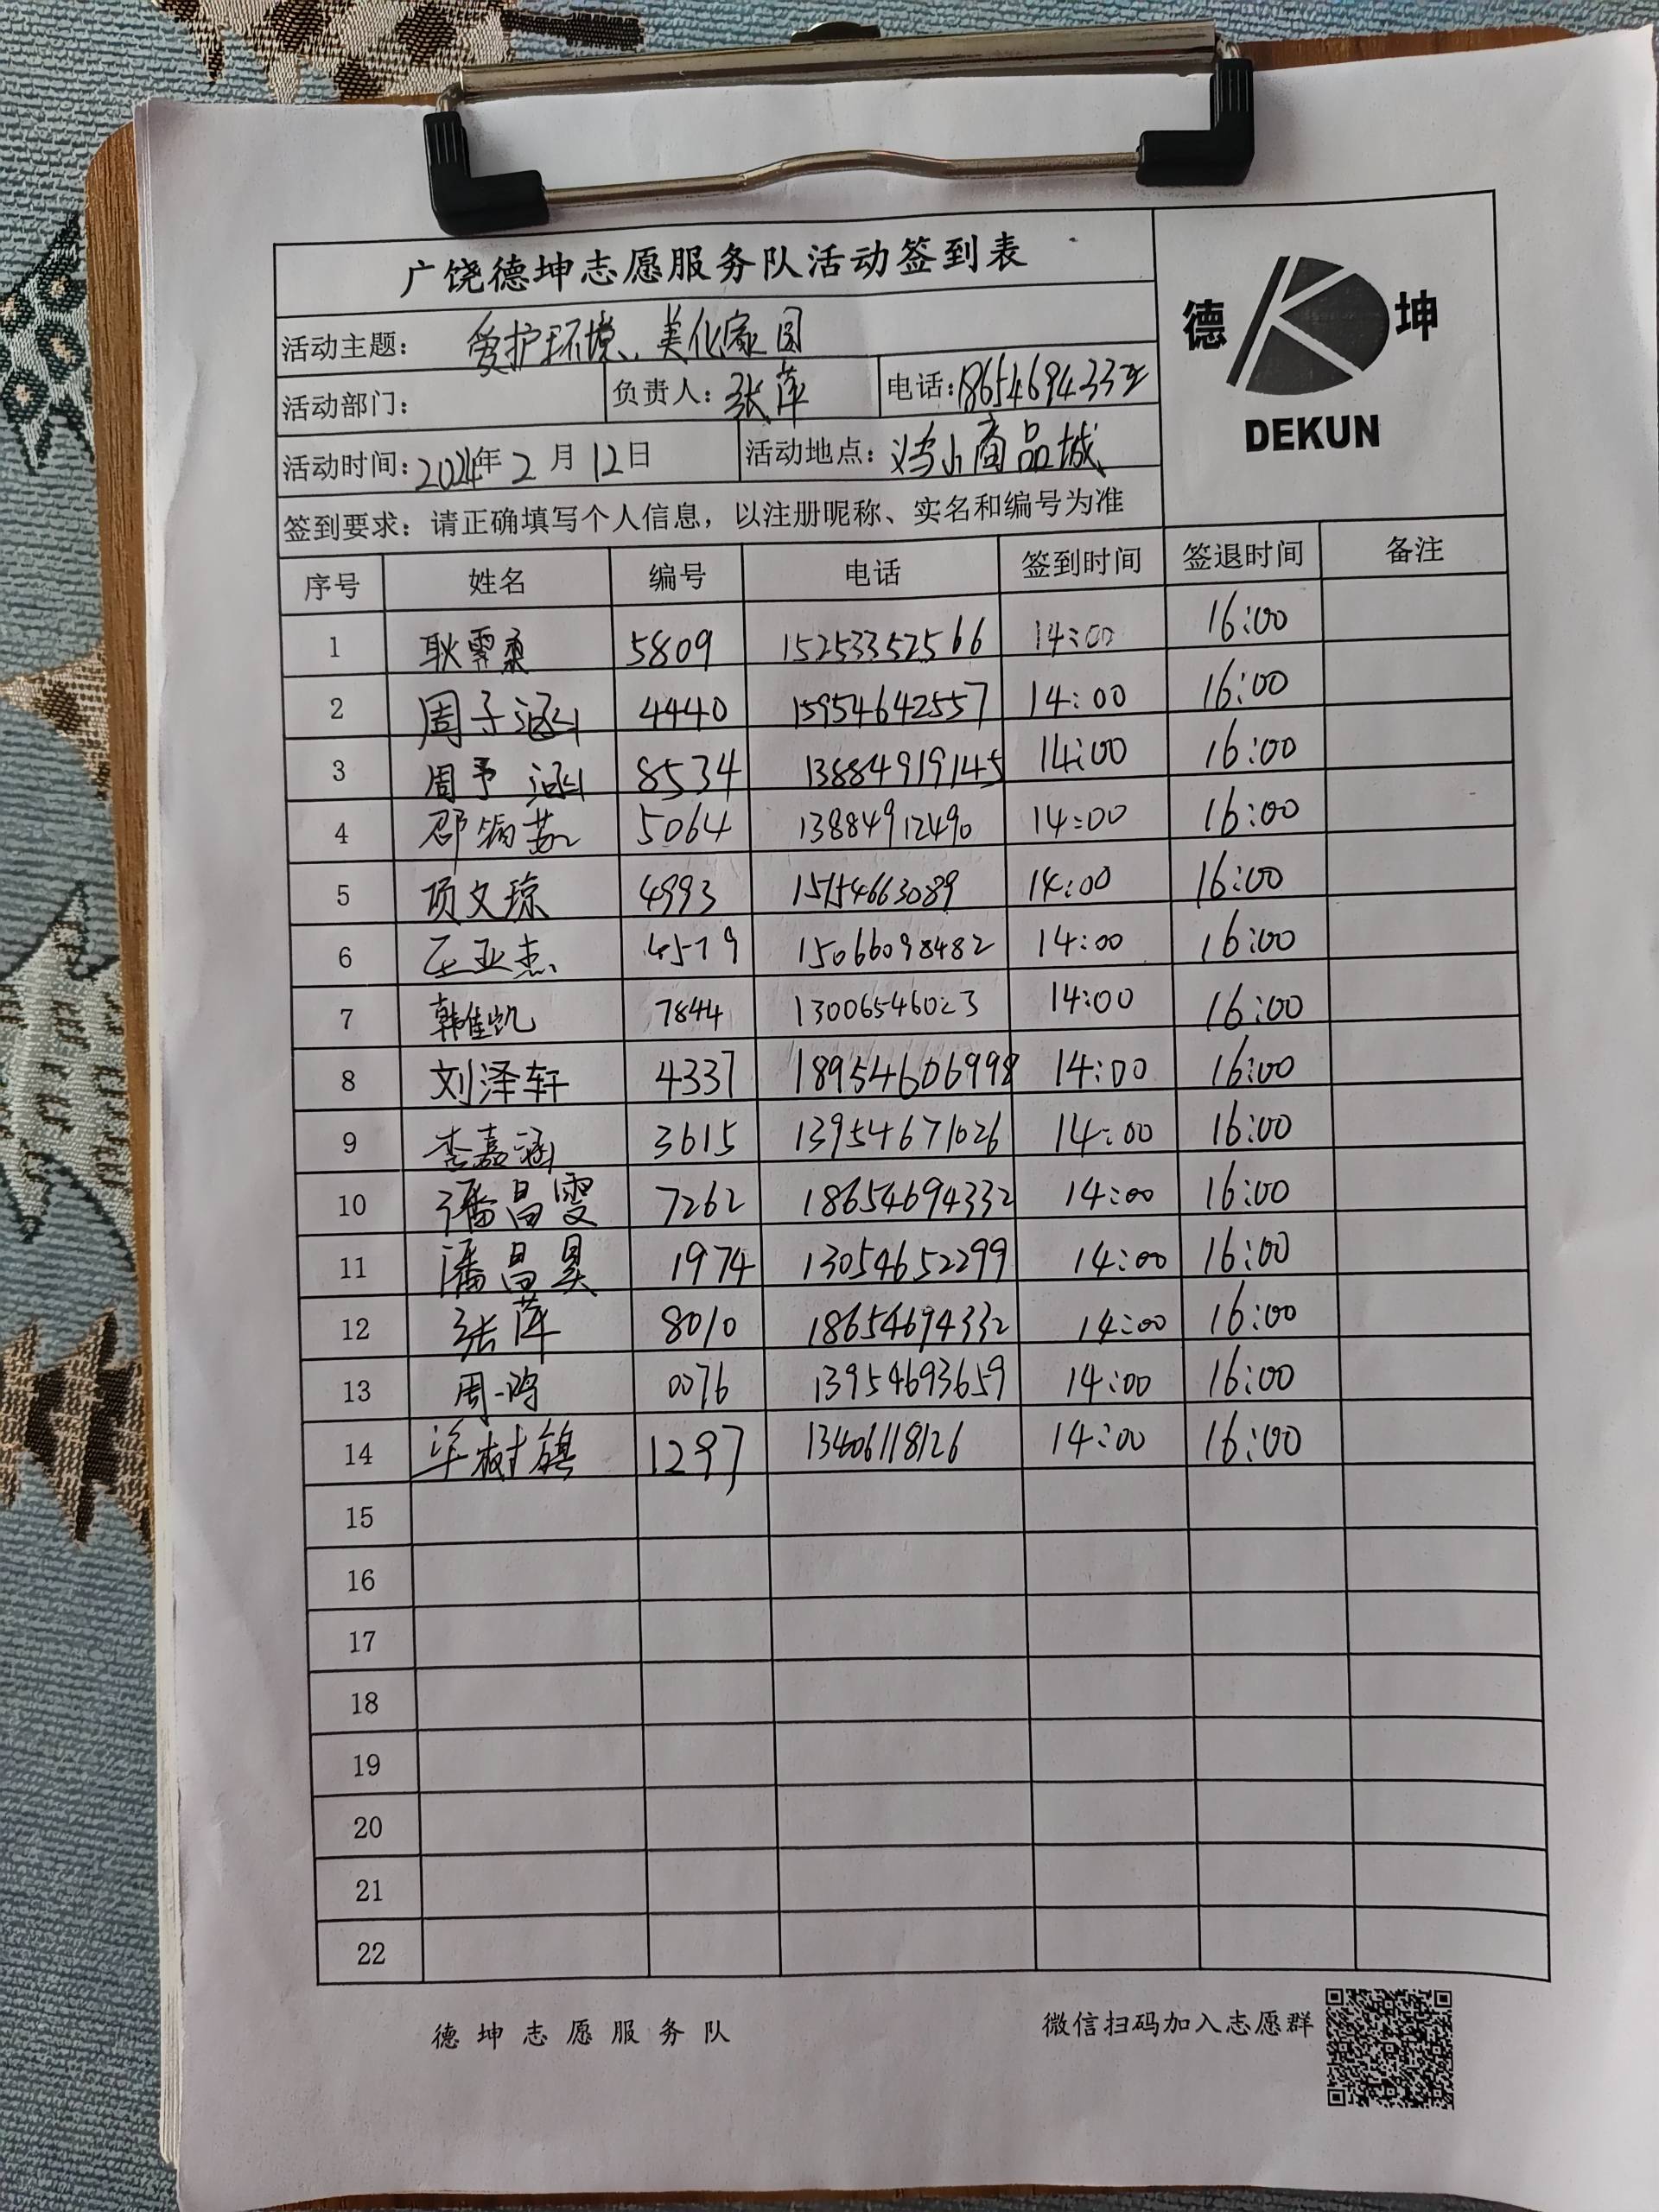 广饶德坤志愿服务队活动签到表
德 坤
DEKUN
活动主题: 爱护环境、美化家园
活动部门: 负责人: 张萍 电话:
活动时间: 2024年 2 月 12日 活动地点: 商品城
签到要求: 请正确填写个人信息，以注册昵称、实名和编号为准
序号 姓名 编号 电话 签到时间 签退时间 备注
1 耿霁 5809 15253352566 14:00 16:00
2 周子涵 4440 15954642557 14:00 16:00
3 周予涵 8534 13884919145 14:00 16:00
4 5064 13884912490 14:00 16:00
5 项文琼 4993 15154663089 14:00 16:00
6 亚杰 4519 15066098482 14:00 16:00
7 韩佳凯 7844 14:00 16:00
8 刘泽轩 4337 18954606998 14:00 16:00
9 李嘉涵 3615 13954671026 14:00 16:00
10 潘昌雯 7262 18654694332 14:00 16:00
11 潘昌昊 1974 13054652299 14:00 16:00
12 张萍 8010 18654694332 14:00 16:00
13 周一鸣 0076 13954693659 14:00 16:00
14 树镇 1297 13406118126 14:00 16:00
15
16
17
18
19
20
21
22
德坤志愿服务队 微信扫码加入志愿群